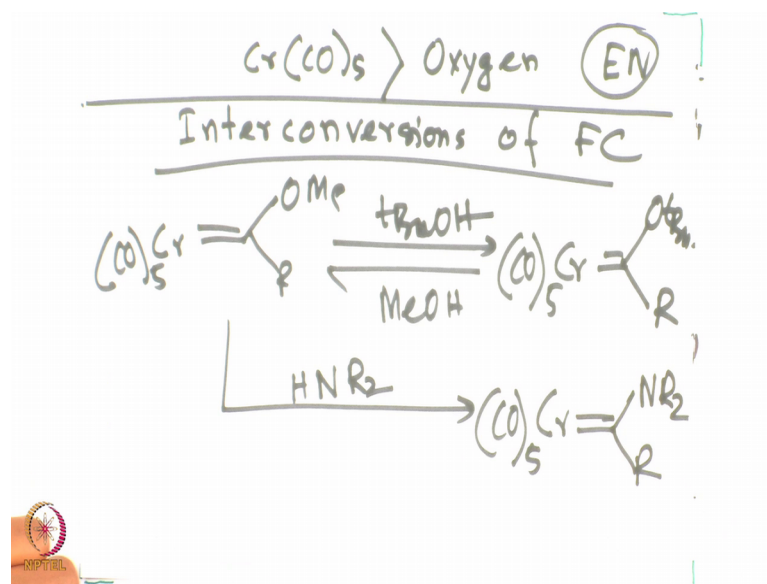 Cr(CO)5 > Oxygen EN
Interconversions of FC
(CO)5Cr = OMe R
tBuOH
MeOH
(CO)5Cr = OtBu R
HNR2
(CO)5Cr = NR2 R
NPTEL